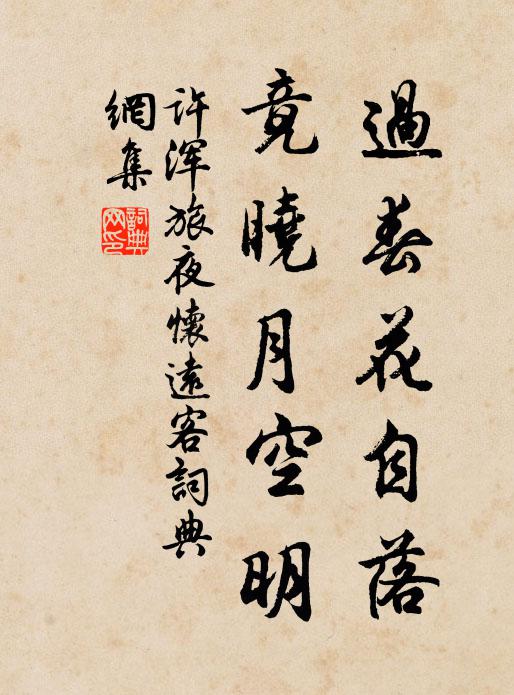 過春花自落
竟曉月空明
许渾旅夜懷遠客詞典
網集
詞典
网印